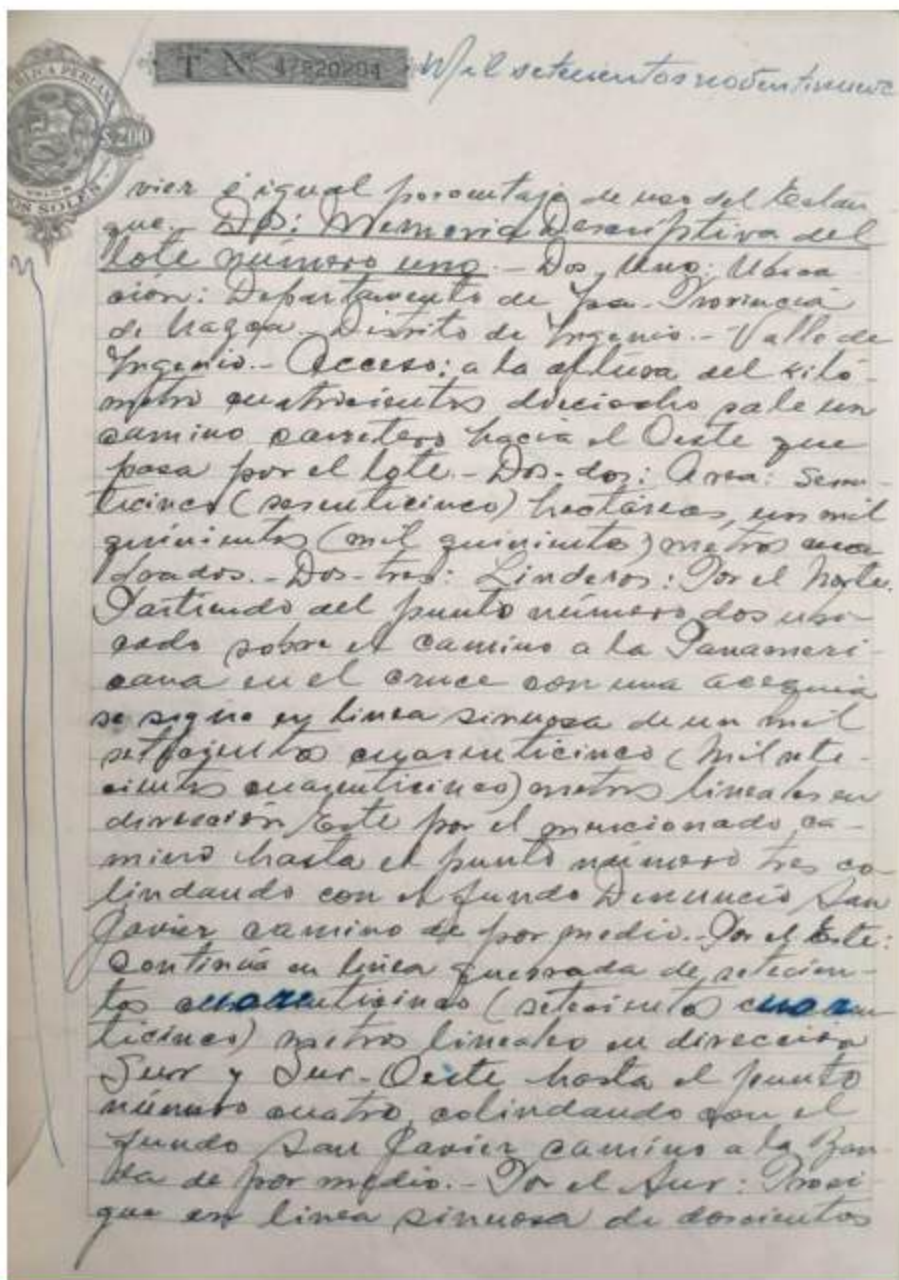 T Nº 47820204
Mil setecientos noventinueve
BLICA PERUAN
S/.200
OS SOLES
vier é igual porcentaje de uso del Estan
que.- Dos: Memoria Descriptiva del
lote número uno.- Dos, Uno: Ubica
ción: Departamento de Ica. Provincia
de Nazca. Distrito de Ingenio.- Valle de
Ingenio.- Acceso: a la altura del kiló-
metro cuatrocientos dieciocho sale un
camino carretero hacia el Oeste que
pasa por el lote.- Dos-dos: Area: Sesen-
ticinco (sesenticinco) hectáreas, un mil
quinientos (mil quinientos) metros cua
drados.- Dos-tres: Linderos: Por el Norte.
Partiendo del punto número dos ubi-
cado sobre el camino a la Panameri-
cana en el cruce con una acequia
se sigue en linea sinuosa de un mil
setecientos cuarenticinco (mil sete-
cientos cuarenticinco) metros lineales en
dirección Este por el mencionado ca-
mino hasta el punto número tres co
lindando con el fundo Denuncio San
Javier camino de por medio.- Por el Este:
Continúa en linea quebrada de setecien-
tos cuarenticinco (setecientos cuaren
ticinco) metros lineales en dirección
Sur y Sur-Oeste hasta el punto
número cuatro, colindando con el
fundo San Javier camino a la Ban-
da de por medio.- Por el Sur: Prosi-
gue en linea sinuosa de doscientos